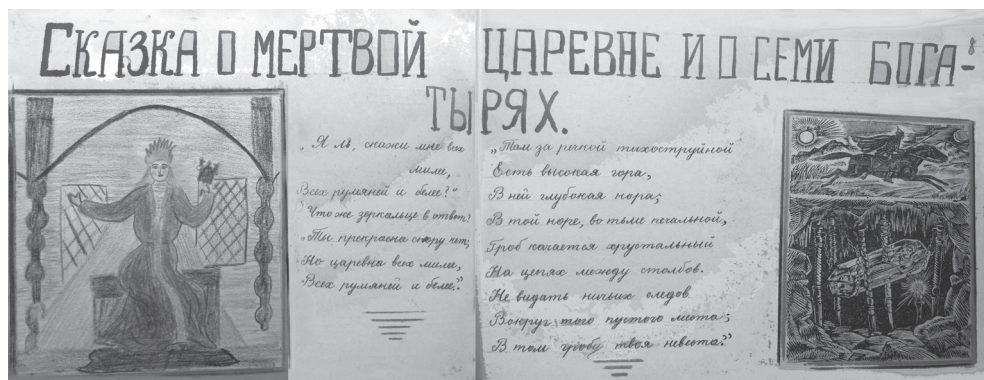 СКАЗКА О МЕРТВОЙ ЦАРЕВНЕ И О СЕМИ БОГА-
ТЫРЯХ.
„Я ль, скажи мне всех
милее,
Всех румяней и белее?"
Что же зеркальце в ответ?
„Ты прекрасна спору нет;
Но царевна всех милее,
Всех румяней и белее."
„Там за речкой тихоструйной
Есть высокая гора,
В ней глубокая нора;
В той норе, во тьме печальной,
Гроб качается хрустальный
На цепях между столбов.
Не видать ничьих следов
Вокруг того пустого места;
В том гробу твоя невеста."